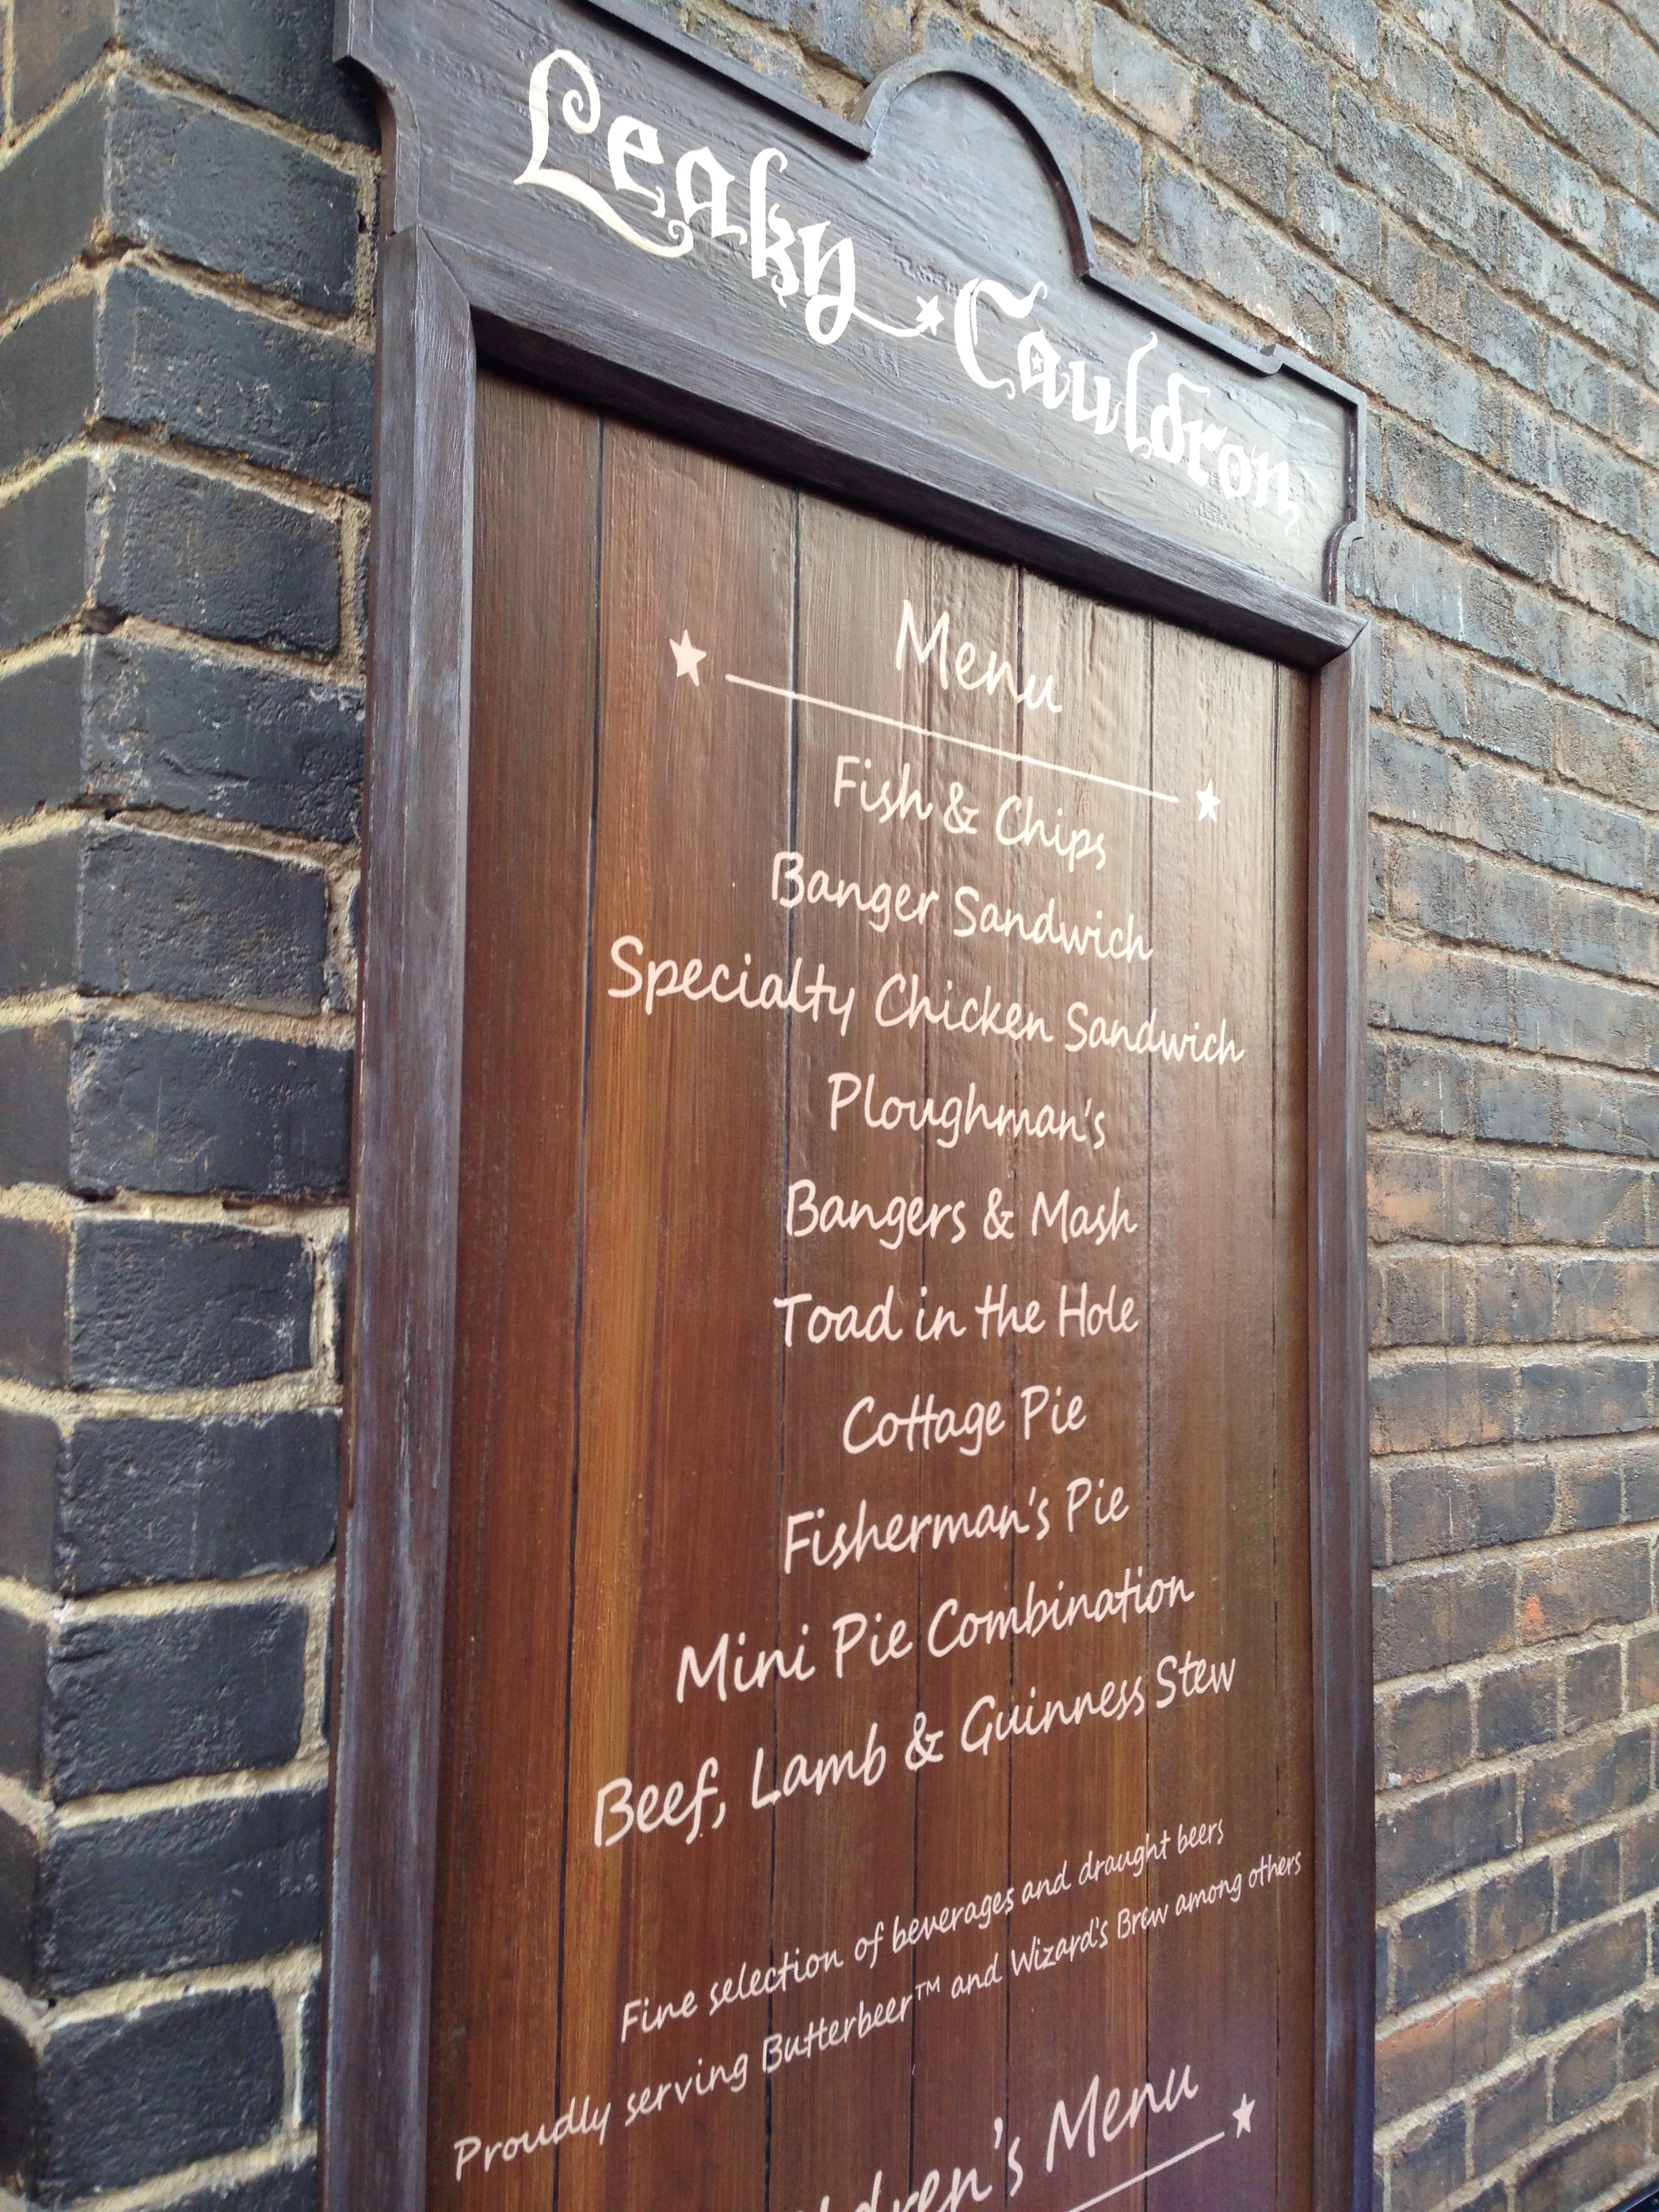 Leaky Cauldron
Menu
Fish & Chips
Banger Sandwich
Specialty Chicken Sandwich
Ploughman's
Bangers & Mash
Toad in the Hole
Cottage Pie
Fisherman's Pie
Mini Pie Combination
Beef, Lamb & Guinness Stew
Fine selection of beverages and draught beers
Proudly serving Butterbeer™ and Wizard's Brew among others
Menu